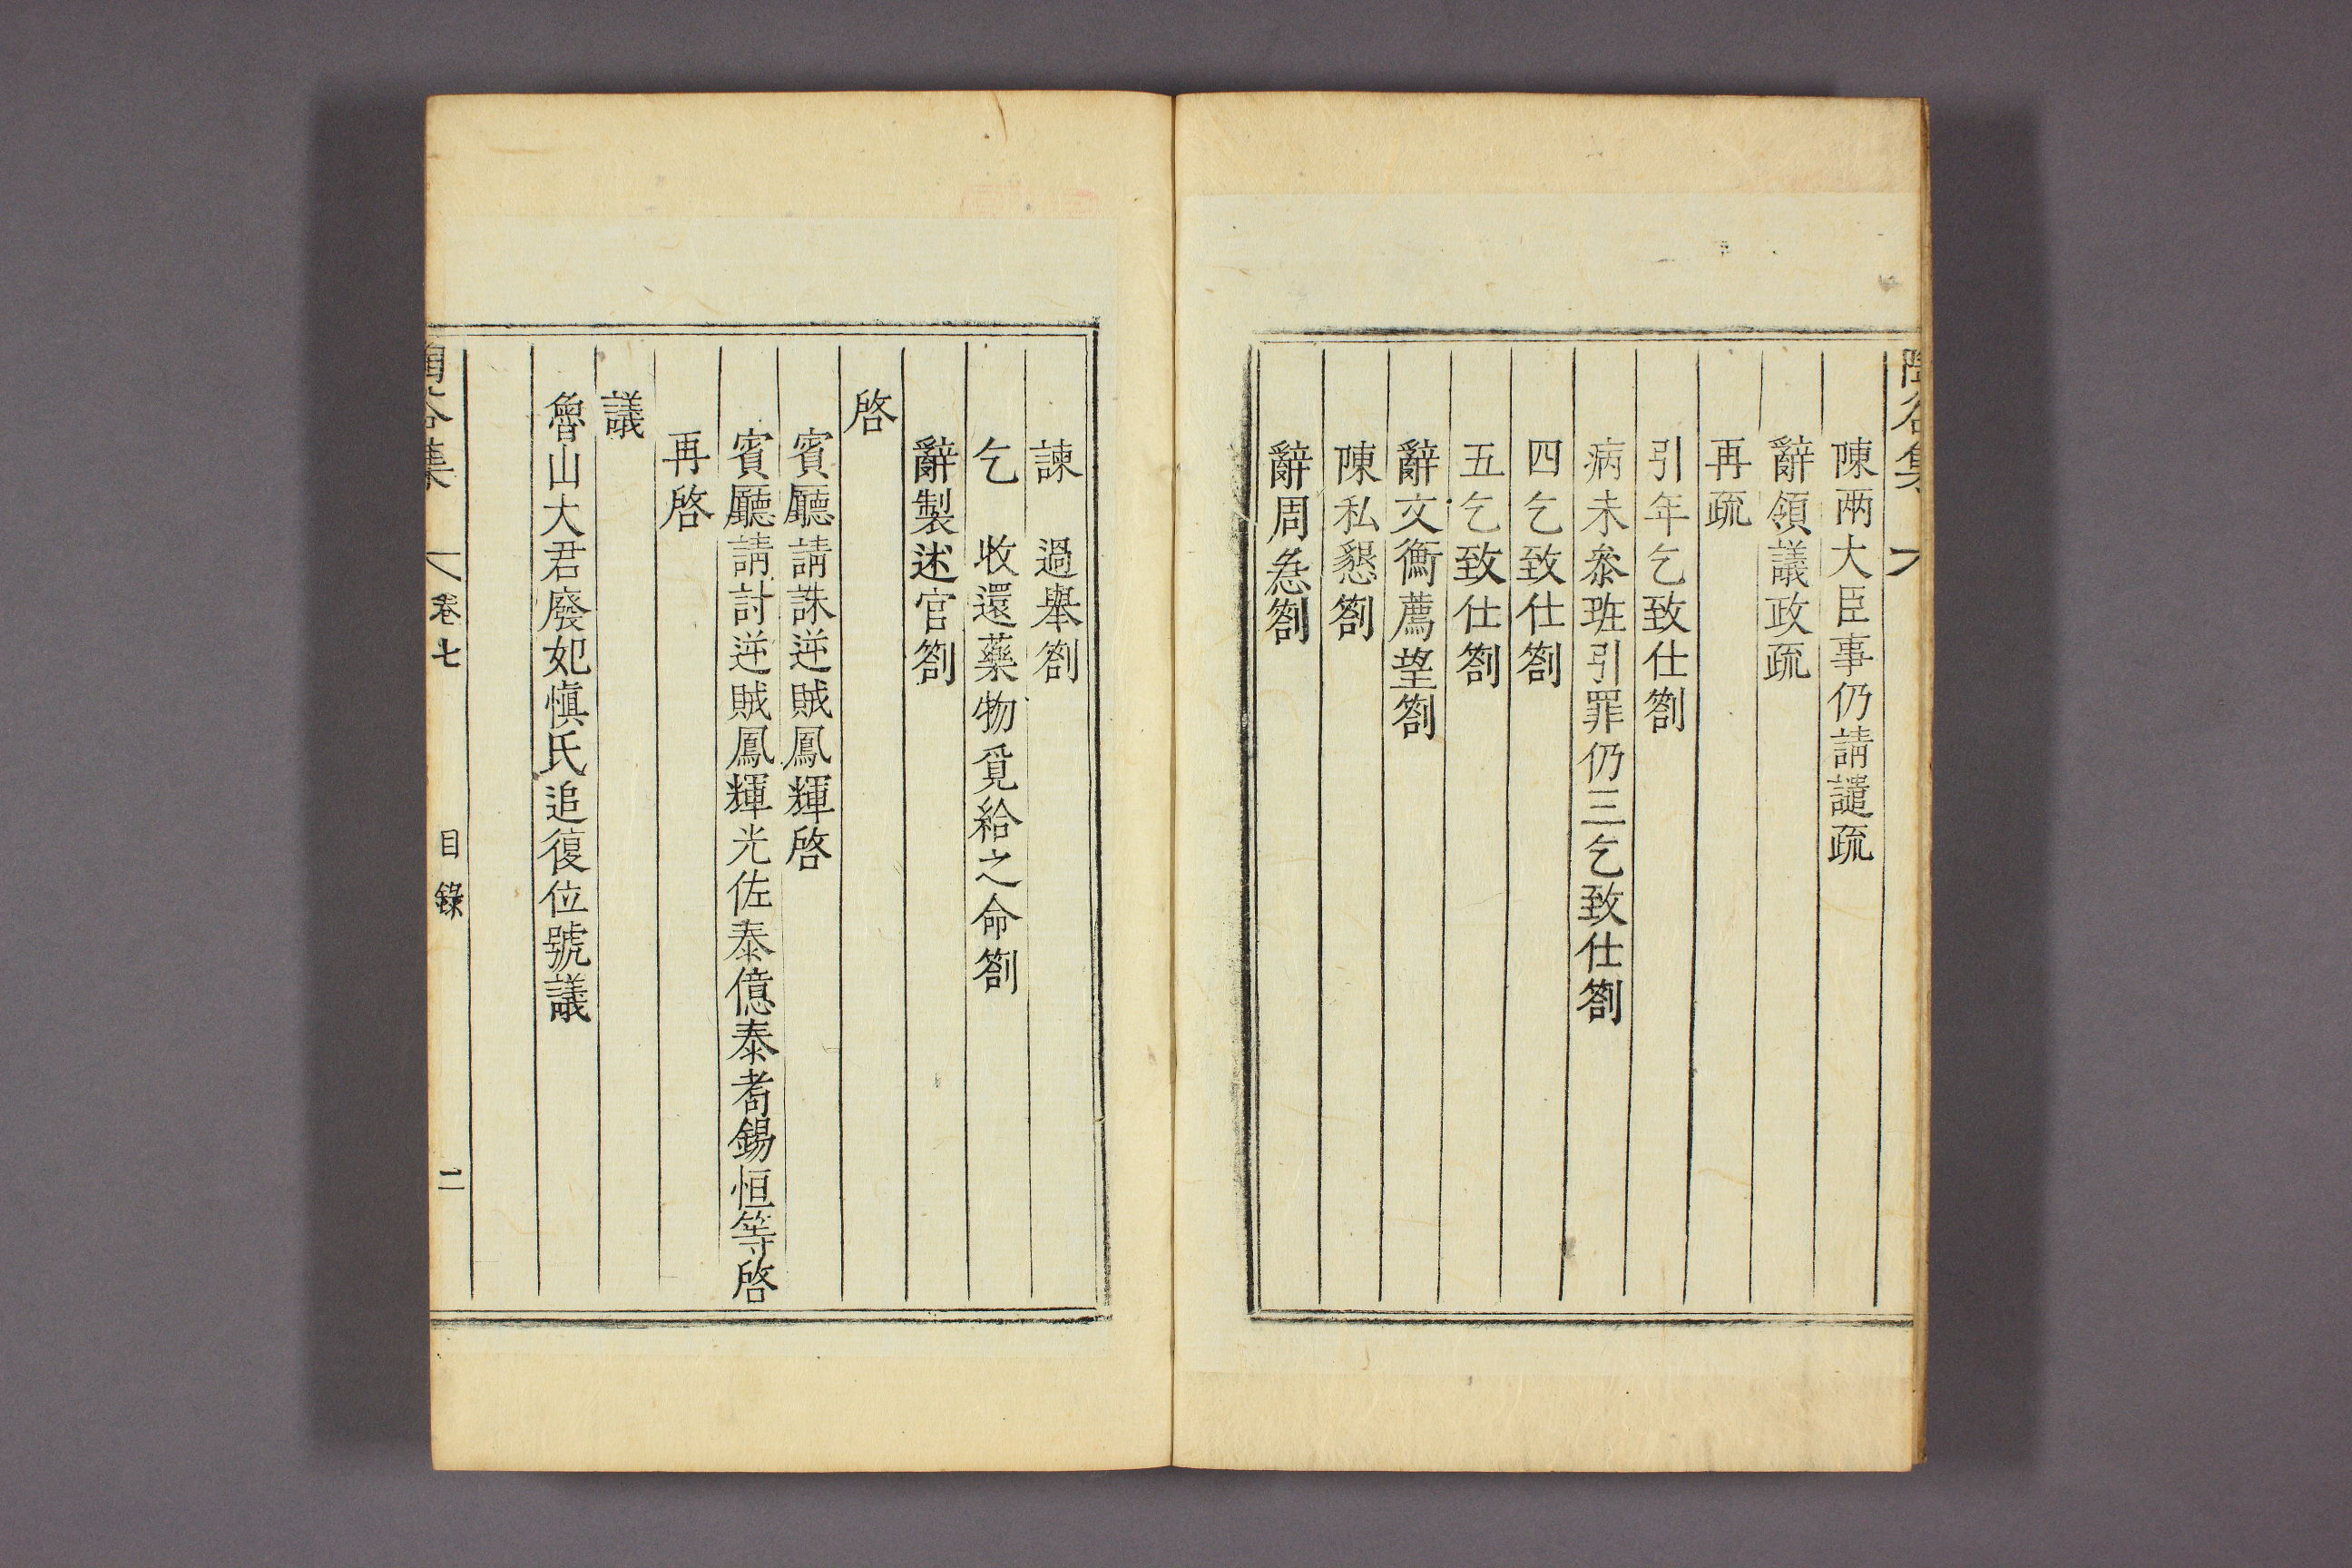 陳兩大臣事仍請譴疏
辭領議政疏
再疏
引年乞致仕劄
病未參班引罪仍三乞致仕劄
四乞致仕劄
五乞致仕劄
辭文衡薦望劄
陳私懇劄
辭周急劄
諫 過擧劄
乞 收還藥物覓給之命劄
辭製述官劄
啓
賓廳請誅逆賊鳳輝啓
賓廳請討逆賊鳳輝光佐泰億泰耈錫恒等啓
再啓
議
魯山大君廢妃愼氏追復位號議
卷七 目錄 二